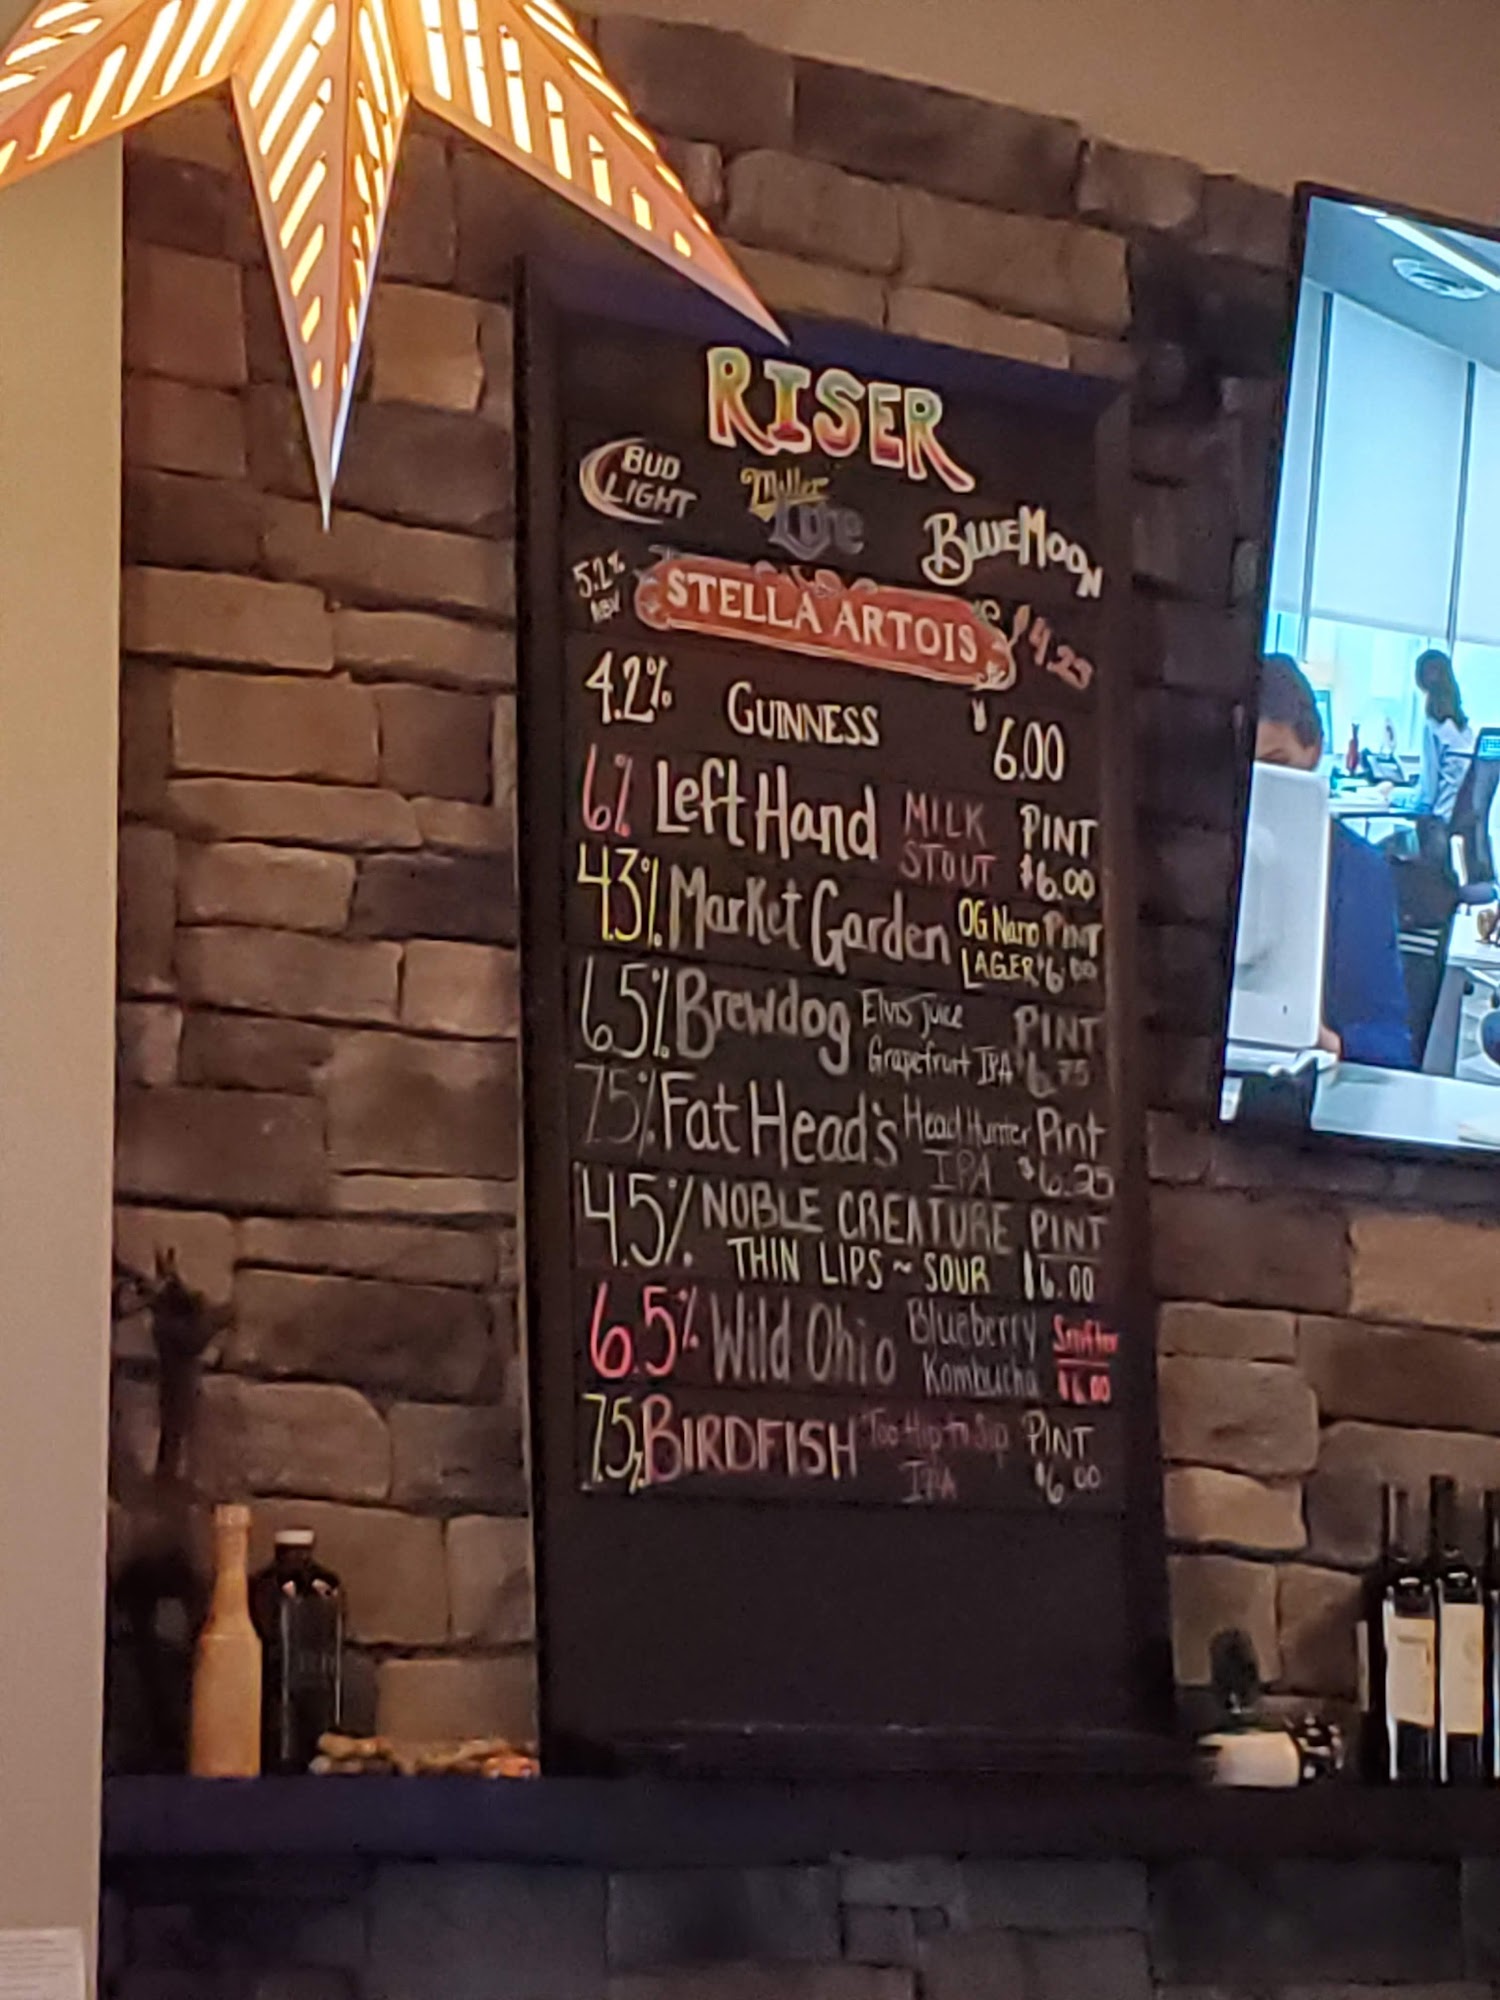 RISER
BUD LIGHT
Miller Lite
BLUE MOON
5.2% ABV STELLA ARTOIS $4.25
4.2% GUINNESS $6.00
6% Left Hand MILK STOUT PINT $6.00
4.3% Market Garden OG Nano LAGER PINT $6.00
6.5% Brewdog Elvis juice Grapefruit IPA PINT $6.75
7.5% Fat Head's Head Hunter IPA Pint $6.25
4.5% NOBLE CREATURE PINT
THIN LIPS ~ SOUR $6.00
6.5% Wild Ohio Blueberry Kombucha Snifter $6.00
7.5% BIRDFISH Too Hip to Sip IPA PINT $6.00